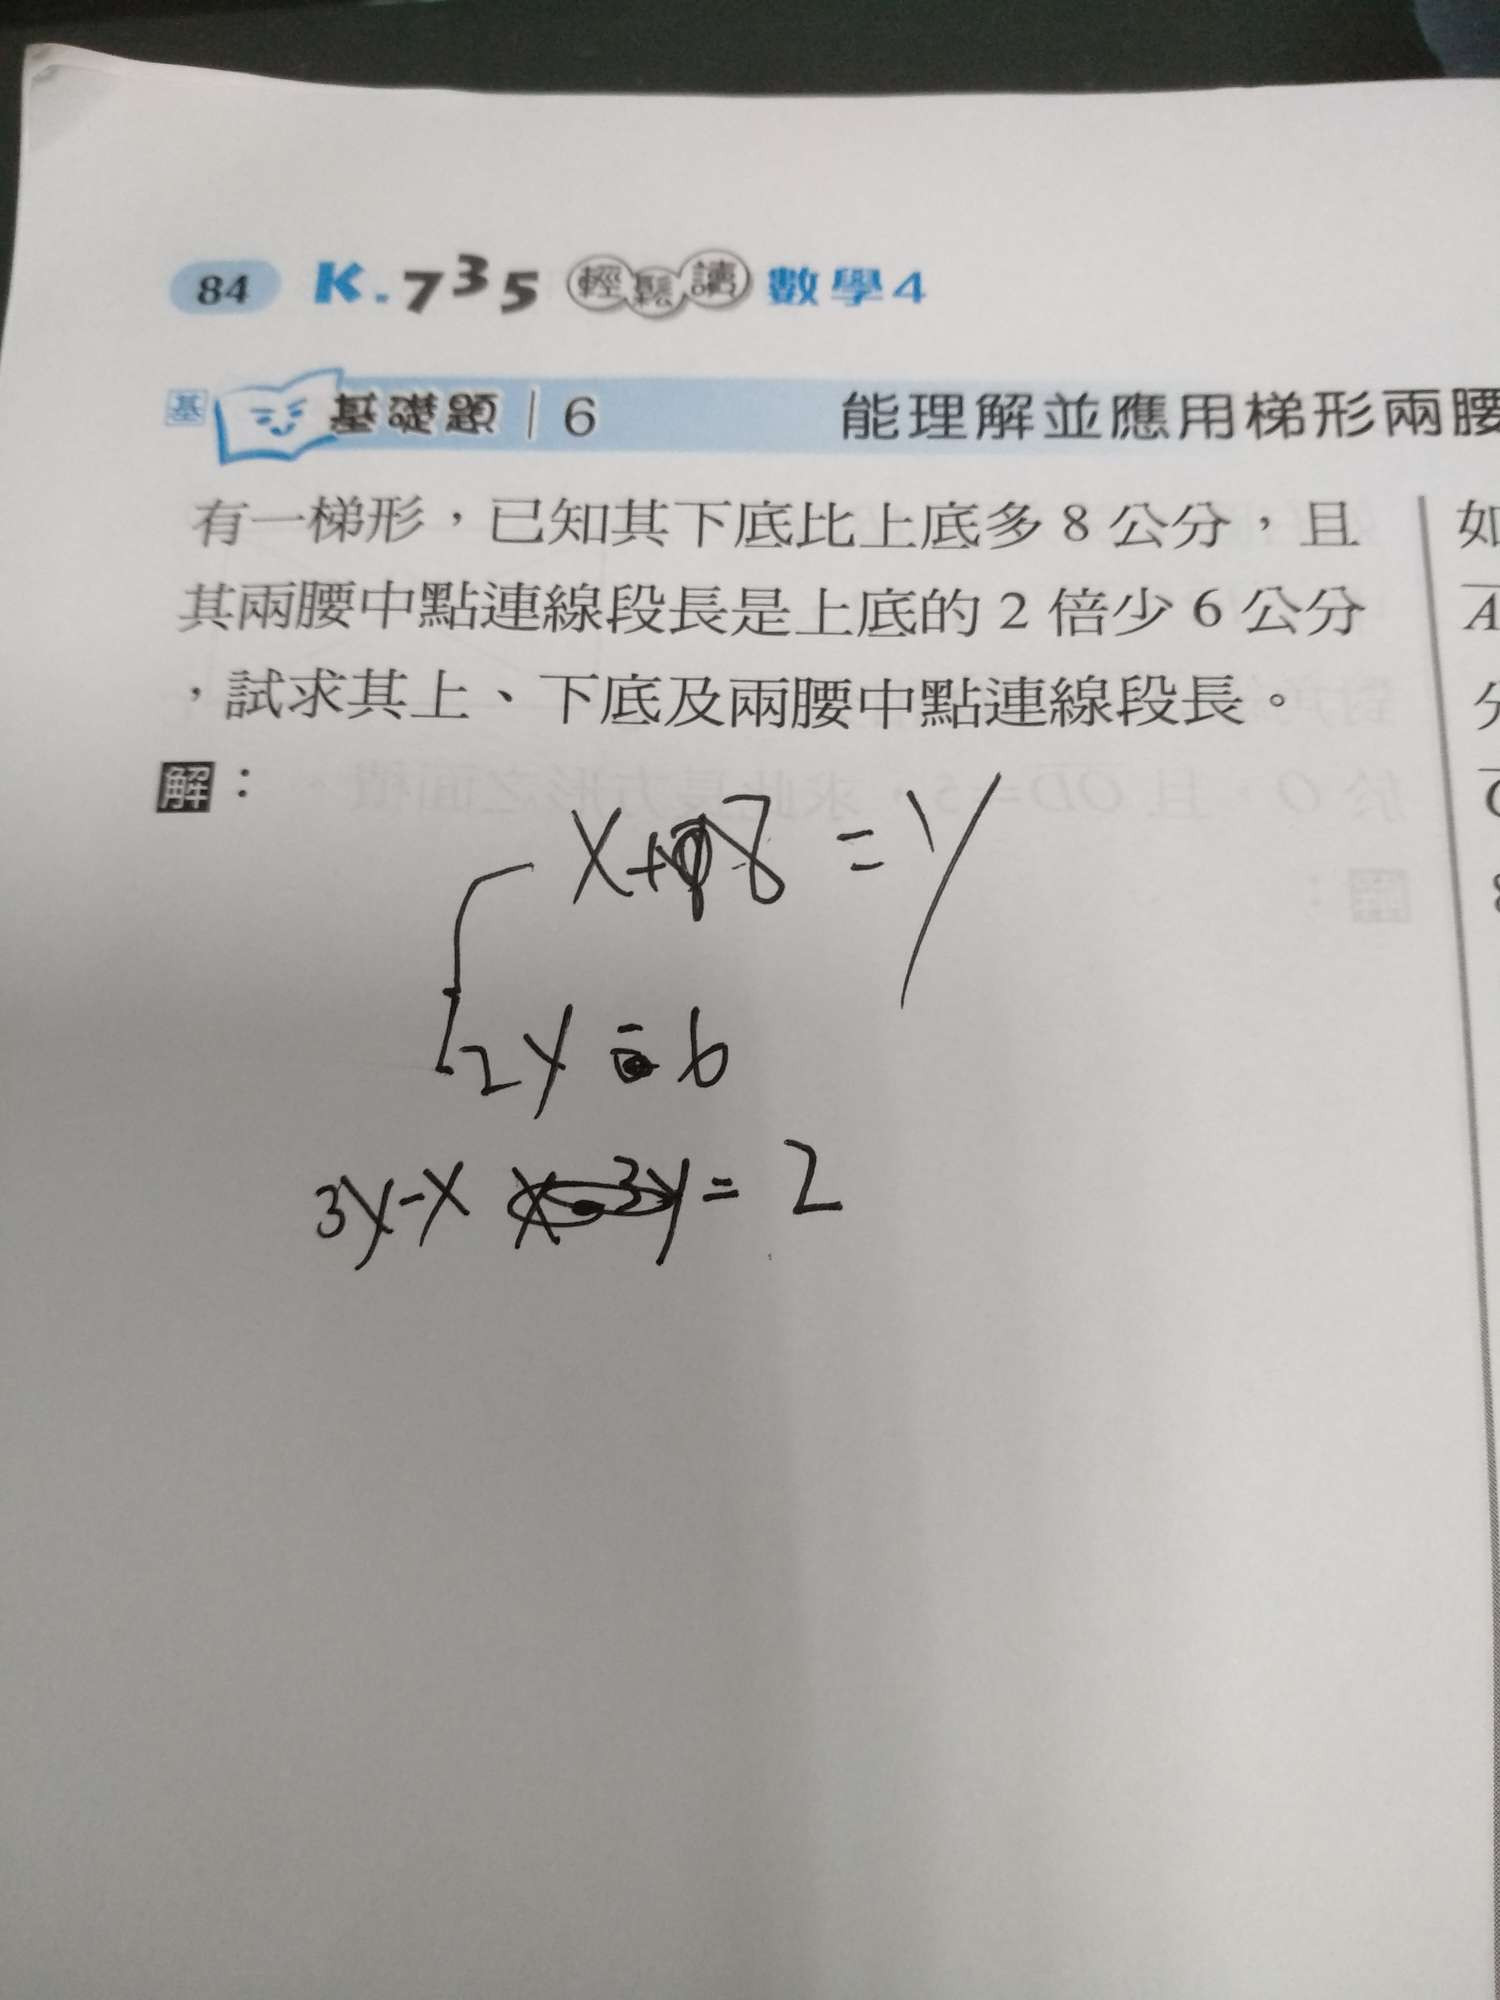 84 K.735 輕鬆讀 數學4
基 基礎題 | 6 能理解並應用梯形兩腰
有一梯形,已知其下底比上底多 8 公分,且
其兩腰中點連線段長是上底的 2 倍少 6 公分
,試求其上、下底及兩腰中點連線段長。
解:
x+8 = y
2y = 6
3y-x = 2
如
A